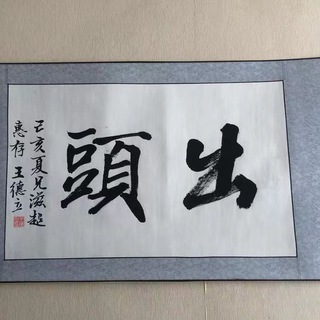 出頭
己亥夏兄滋超
惠存 王德立